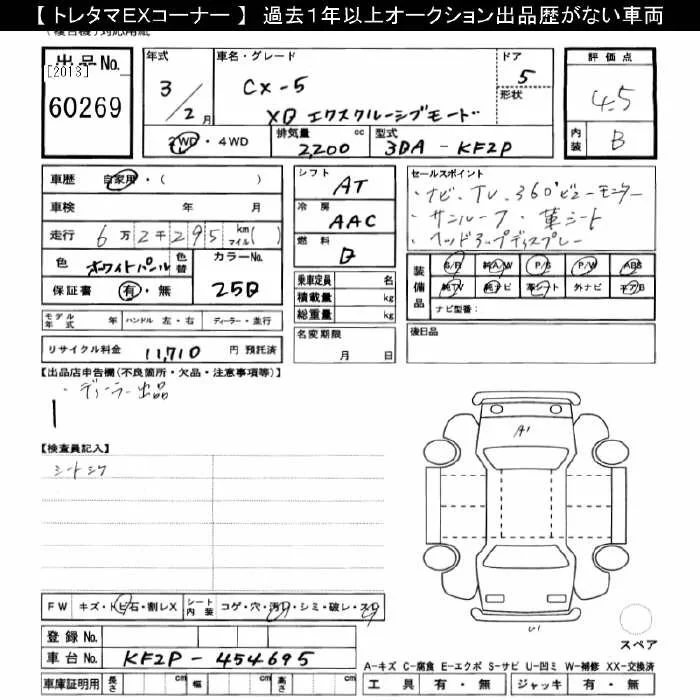 【 トレタマEXコーナー 】 過去1年以上オークション出品歴がない車両
出品No.
[2013]
60269
年式
3/2月
車名・グレード
CX-5
XD エクスクルーシブモード
ドア
5
形状
評価点
4.5
内装
B
2WD・4WD
排気量
2,200 cc
型式
3DA-KF2P
車歴 自家用・( )
車検 年 月
走行 6万2千295 km マイル( )
色 ホワイトパール
色替
カラーNo.
25D
保証書 有・無
シフト
AT
冷房
AAC
燃料
D
乗車定員 名
積載量 kg
総重量 kg
セールスポイント
・ナビ.TV.360°ビューモニター
・サンルーフ・革シート
・ヘッドアップディスプレー
装備品
S/R 純A/W P/S P/W ABS
純TV 純ナビ 革シート 外ナビ エアB
ナビ型番:
モデル年式 年 ハンドル 左・右 ディーラー・並行
リサイクル料金 11,710 円 預託済
名変期限
月 日
後日品
【出品店申告欄(不良箇所・欠品・注意事項等)】
・ディーラー出品
【検査員記入】
シートシワ
A1
U1
FW キズ・トビ石・割レX
シート内装 コゲ・穴・汚レ・シミ・破レ・スレ
スペア
登録No.
車台No. KF2P-454695
車庫証明用 長さ cm 幅 cm 高さ cm
A-キズ C-腐食 E-エクボ S-サビ U-凹ミ W-補修 XX-交換済
工具 有・無 ジャッキ 有・無